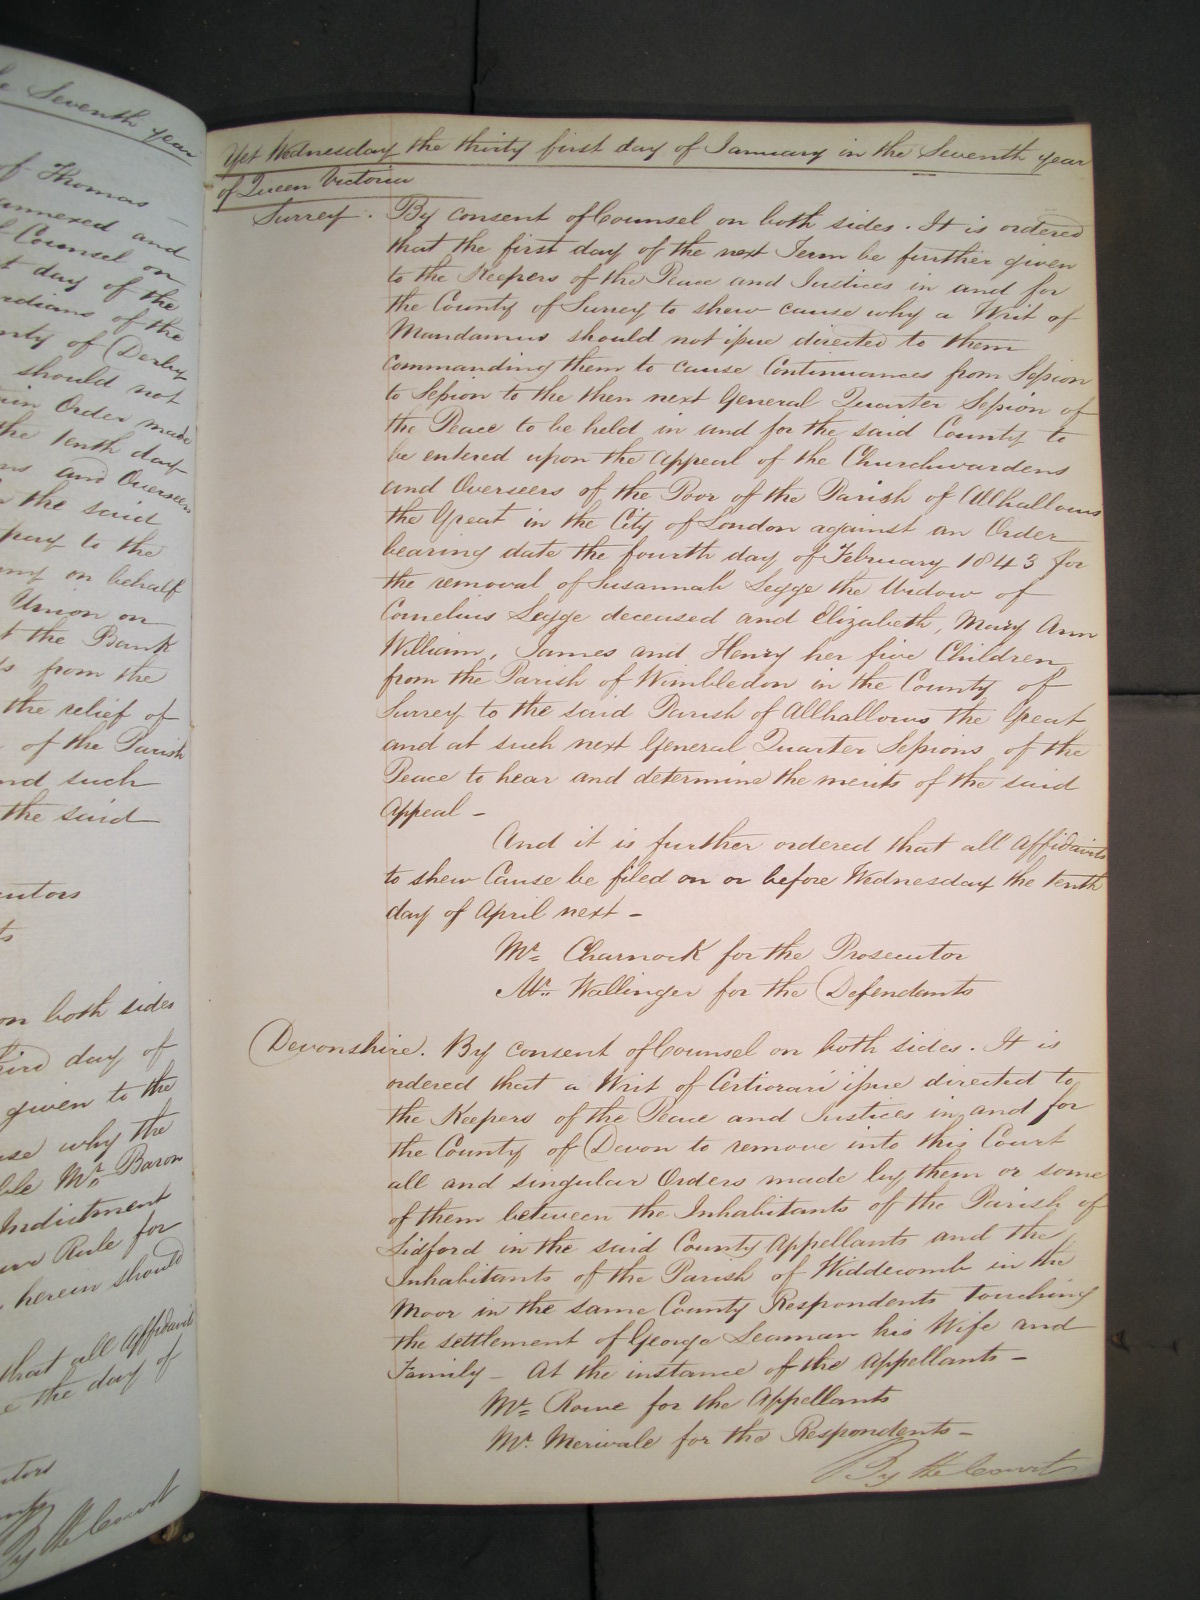 e Seventh year
of Thomas —
annexed and
f Counsel on
t day of the
rdians of the
nty of Derby
should not
ain Order made
the tenth day
ns and Overseers
n the said
pay to the
on behalf
Union on
t the Bank
s from the
the relief of
of the Parish
nd such
the said
cutors
ts
on both sides
third day of
given to the
use why the
ble Mr. Baron
Indictment
Rule for
herein should
that all Affidavits
e the day of
cutors
nts
By the Court
Yet Wednesday the thirty first day of January in the Seventh year
of Queen Victoria
Surrey. By consent of Counsel on both sides. It is ordered
that the first day of the next Term be further given
to the Keepers of the Peace and Justices in and for
the County of Surrey to shew cause why a Writ of
Mandamus should not issue directed to them
commanding them to cause Continuances from Session
to Session to the then next General Quarter Session of
the Peace to be held in and for the said County to
be entered upon the Appeal of the Churchwardens
and Overseers of the Poor of the Parish of Allhallows
the Great in the City of London against an Order
bearing date the fourth day of February 1843 for
the removal of Susannah Legge the Widow of
Cornelius Legge deceased and Elizabeth, Mary Ann
William, James and Henry her five Children
from the Parish of Wimbledon in the County of
Surrey to the said Parish of Allhallows the Great
and at such next General Quarter Sessions of the
Peace to hear and determine the merits of the said
Appeal –
And it is further ordered that all Affidavits
to shew Cause be filed on or before Wednesday the tenth
day of April next –
Mr. Charnock for the Prosecutor
Mr. Wallinger for the Defendants
Devonshire. By consent of Counsel on both sides. It is
ordered that a Writ of Certiorari issue directed to
the Keepers of the Peace and Justices in and for
the County of Devon to remove into this Court
all and singular Orders made by them or some
of them between the Inhabitants of the Parish of
Lidford in the said County Appellants and the
Inhabitants of the Parish of Widdecomb in the
Moor in the same County Respondents touching
the settlement of George Seaman his Wife and
Family – At the instance of the Appellants –
Mr. Rowe for the Appellants
Mr. Merivale for the Respondents –
By the Court